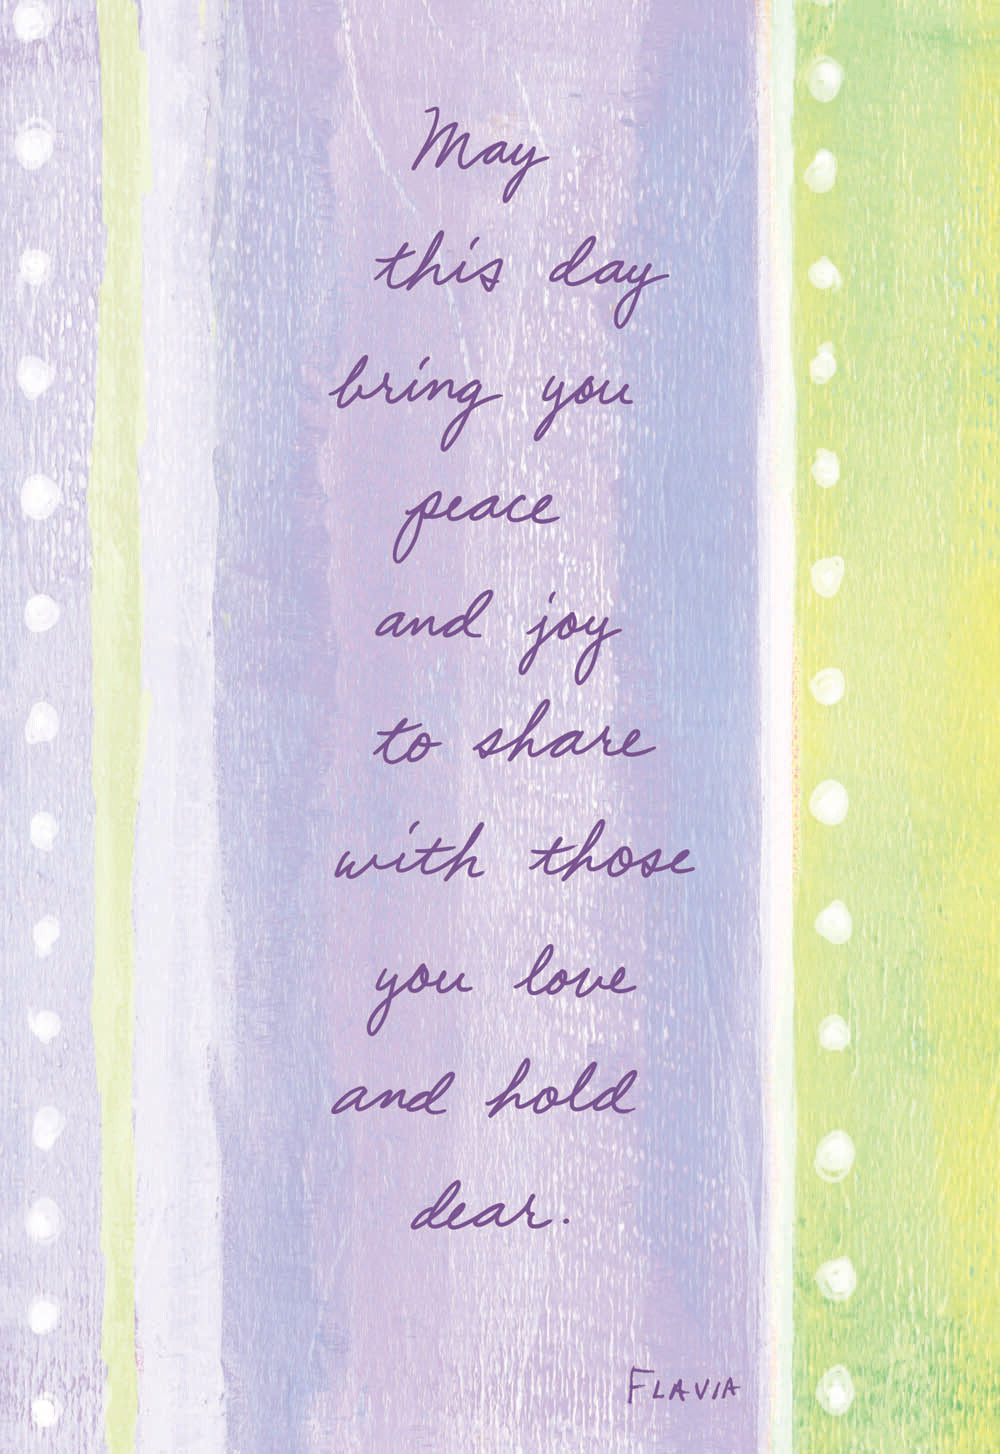 May
this day
bring you
peace
and joy
to share
with those
you love
and hold
dear.
FLAVIA